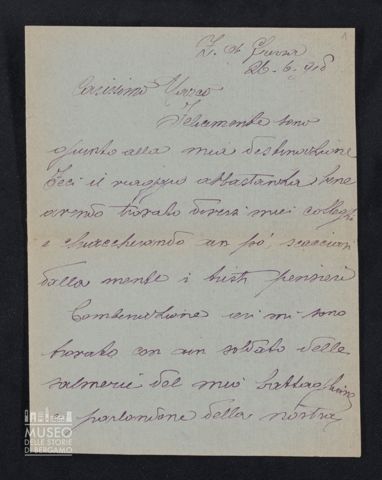 1
Z. di Guerra
26-6-918
Carissimo Marco
Felicemente sono
giunto alla mia destinazione
Feci il viaggio abbastanza bene
avendo trovato diversi miei colleghi
e chiaccherando un pó, scacciai
dalla mente i tristi pensieri
Combinazione ieri mi sono
trovato con un soldato delle
salmerie del mio battaglione
e parlandone della nostra
MUSEO
DELLE STORIE
DI BERGAMO